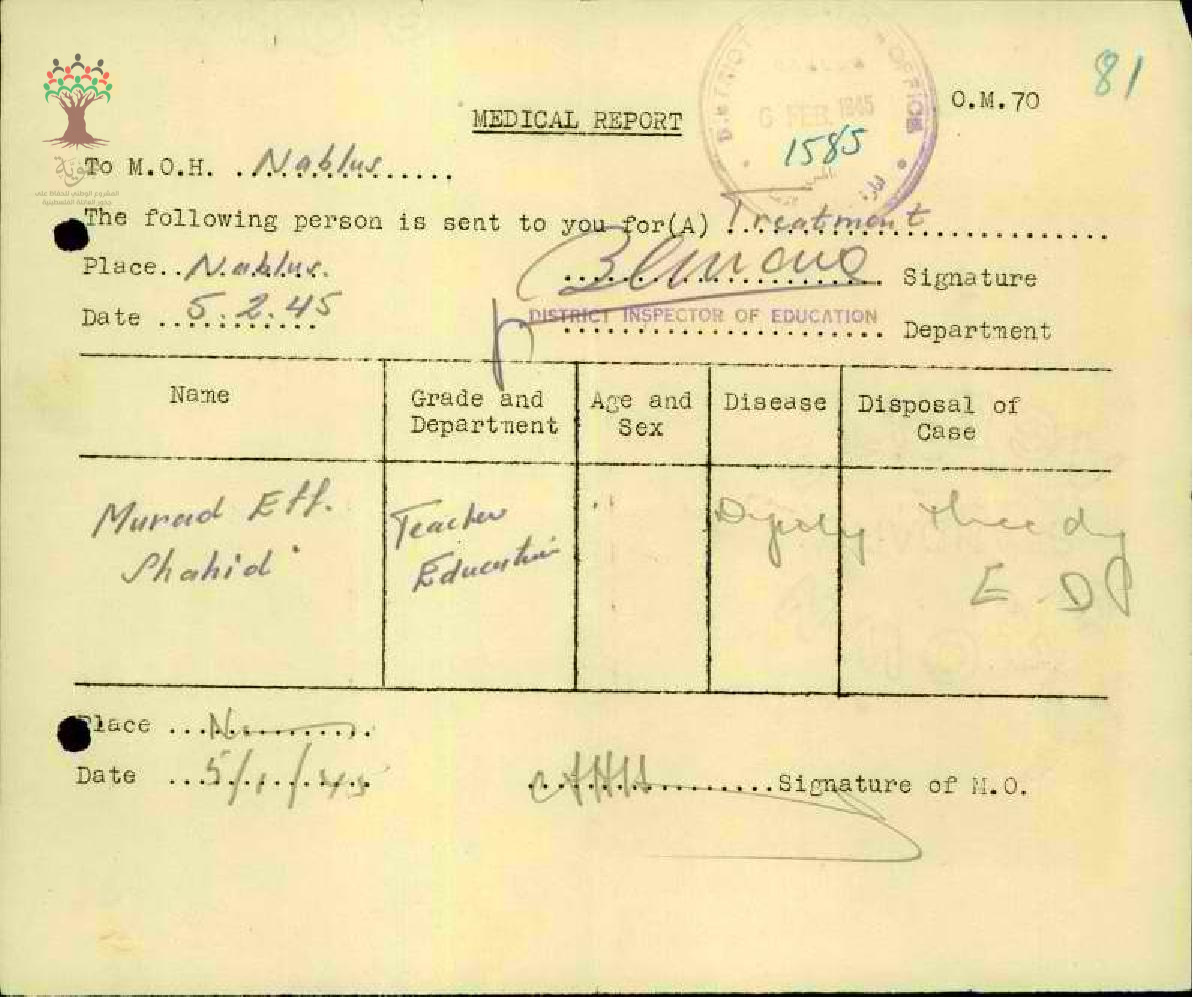 81
O.M.70
MEDICAL REPORT
DISTRICT OFFICE
6 FEB. 1945
1585
هوية
المشروع الوطني للحفاظ على
جذور العائلة الفلسطينية
To M.O.H. Nablus
The following person is sent to you for(A) Treatment
Place Nablus. Signature
Date 5.2.45
DISTRICT INSPECTOR OF EDUCATION
Department
Name Grade and Department Age and Sex Disease Disposal of Case
Murad Eff. Shahid Teacher Education three day E D P
Place
Date 5/1/45
Signature of M.O.